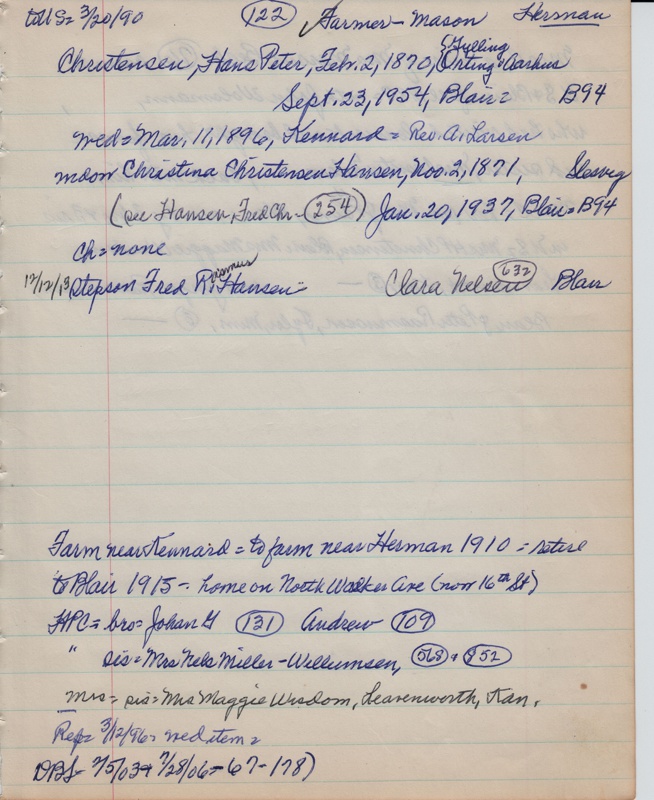 to US = 3/20/90 (122) ✓ Farmer - Mason Herman
Christensen, Hans Peter, Feb. 2, 1870, { Gylling Örting = Aarhus
Sept. 23, 1954, Blair = B94
wed = Mar, 11, 1896, Kennard = Rev. A. Larsen
Christina Christensen Hansen, Nov. 2, 1871, Slesvig
(see Hansen, Fred Chr - (254) Jan. 20, 1937, Blair = B94
ch = none
12/12/13 Stepson Fred Rasmus Hansen = Clara Nelsen (632) Blair
Farm near Kennard = to farm near Herman 1910 = retire
to Blair 1915 - home on North Walker Ave (now 16th St)
HPC = bro = Johan G (131) Andrew (109)
" sis = Mrs Nels Miller - Willumsen, (568) + (852)
Mrs = sis = Mrs Maggie Wisdom, Leavenworth, Kan.
Rep = 3/12/96 = wed item =
DBS - 7/5/03 + 7/28/06 = 67 - 178)